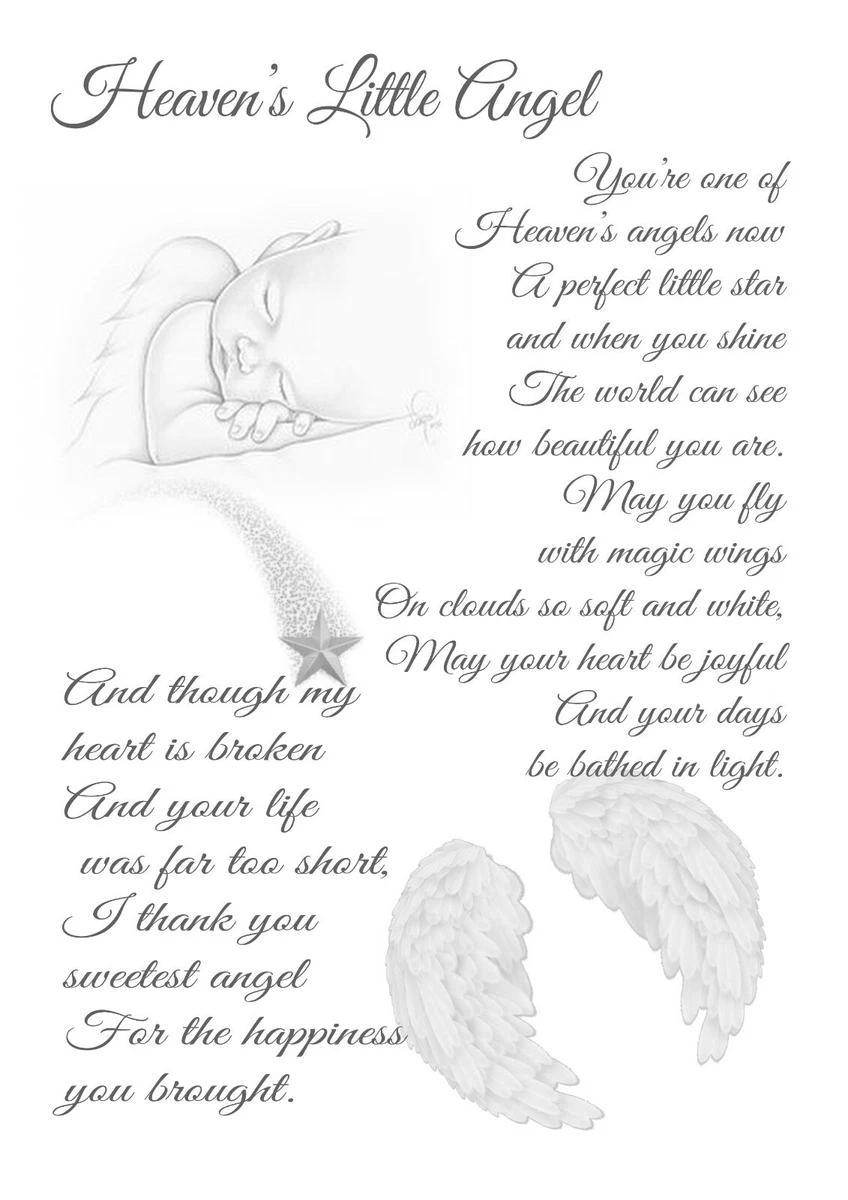 Heaven's Little Angel
You're one of
Heaven's angels now
A perfect little star
and when you shine
The world can see
how beautiful you are.
May you fly
with magic wings
On clouds so soft and white,
May your heart be joyful
And your days
be bathed in light.
And though my
heart is broken
And your life
was far too short,
I thank you
sweetest angel
For the happiness
you brought.